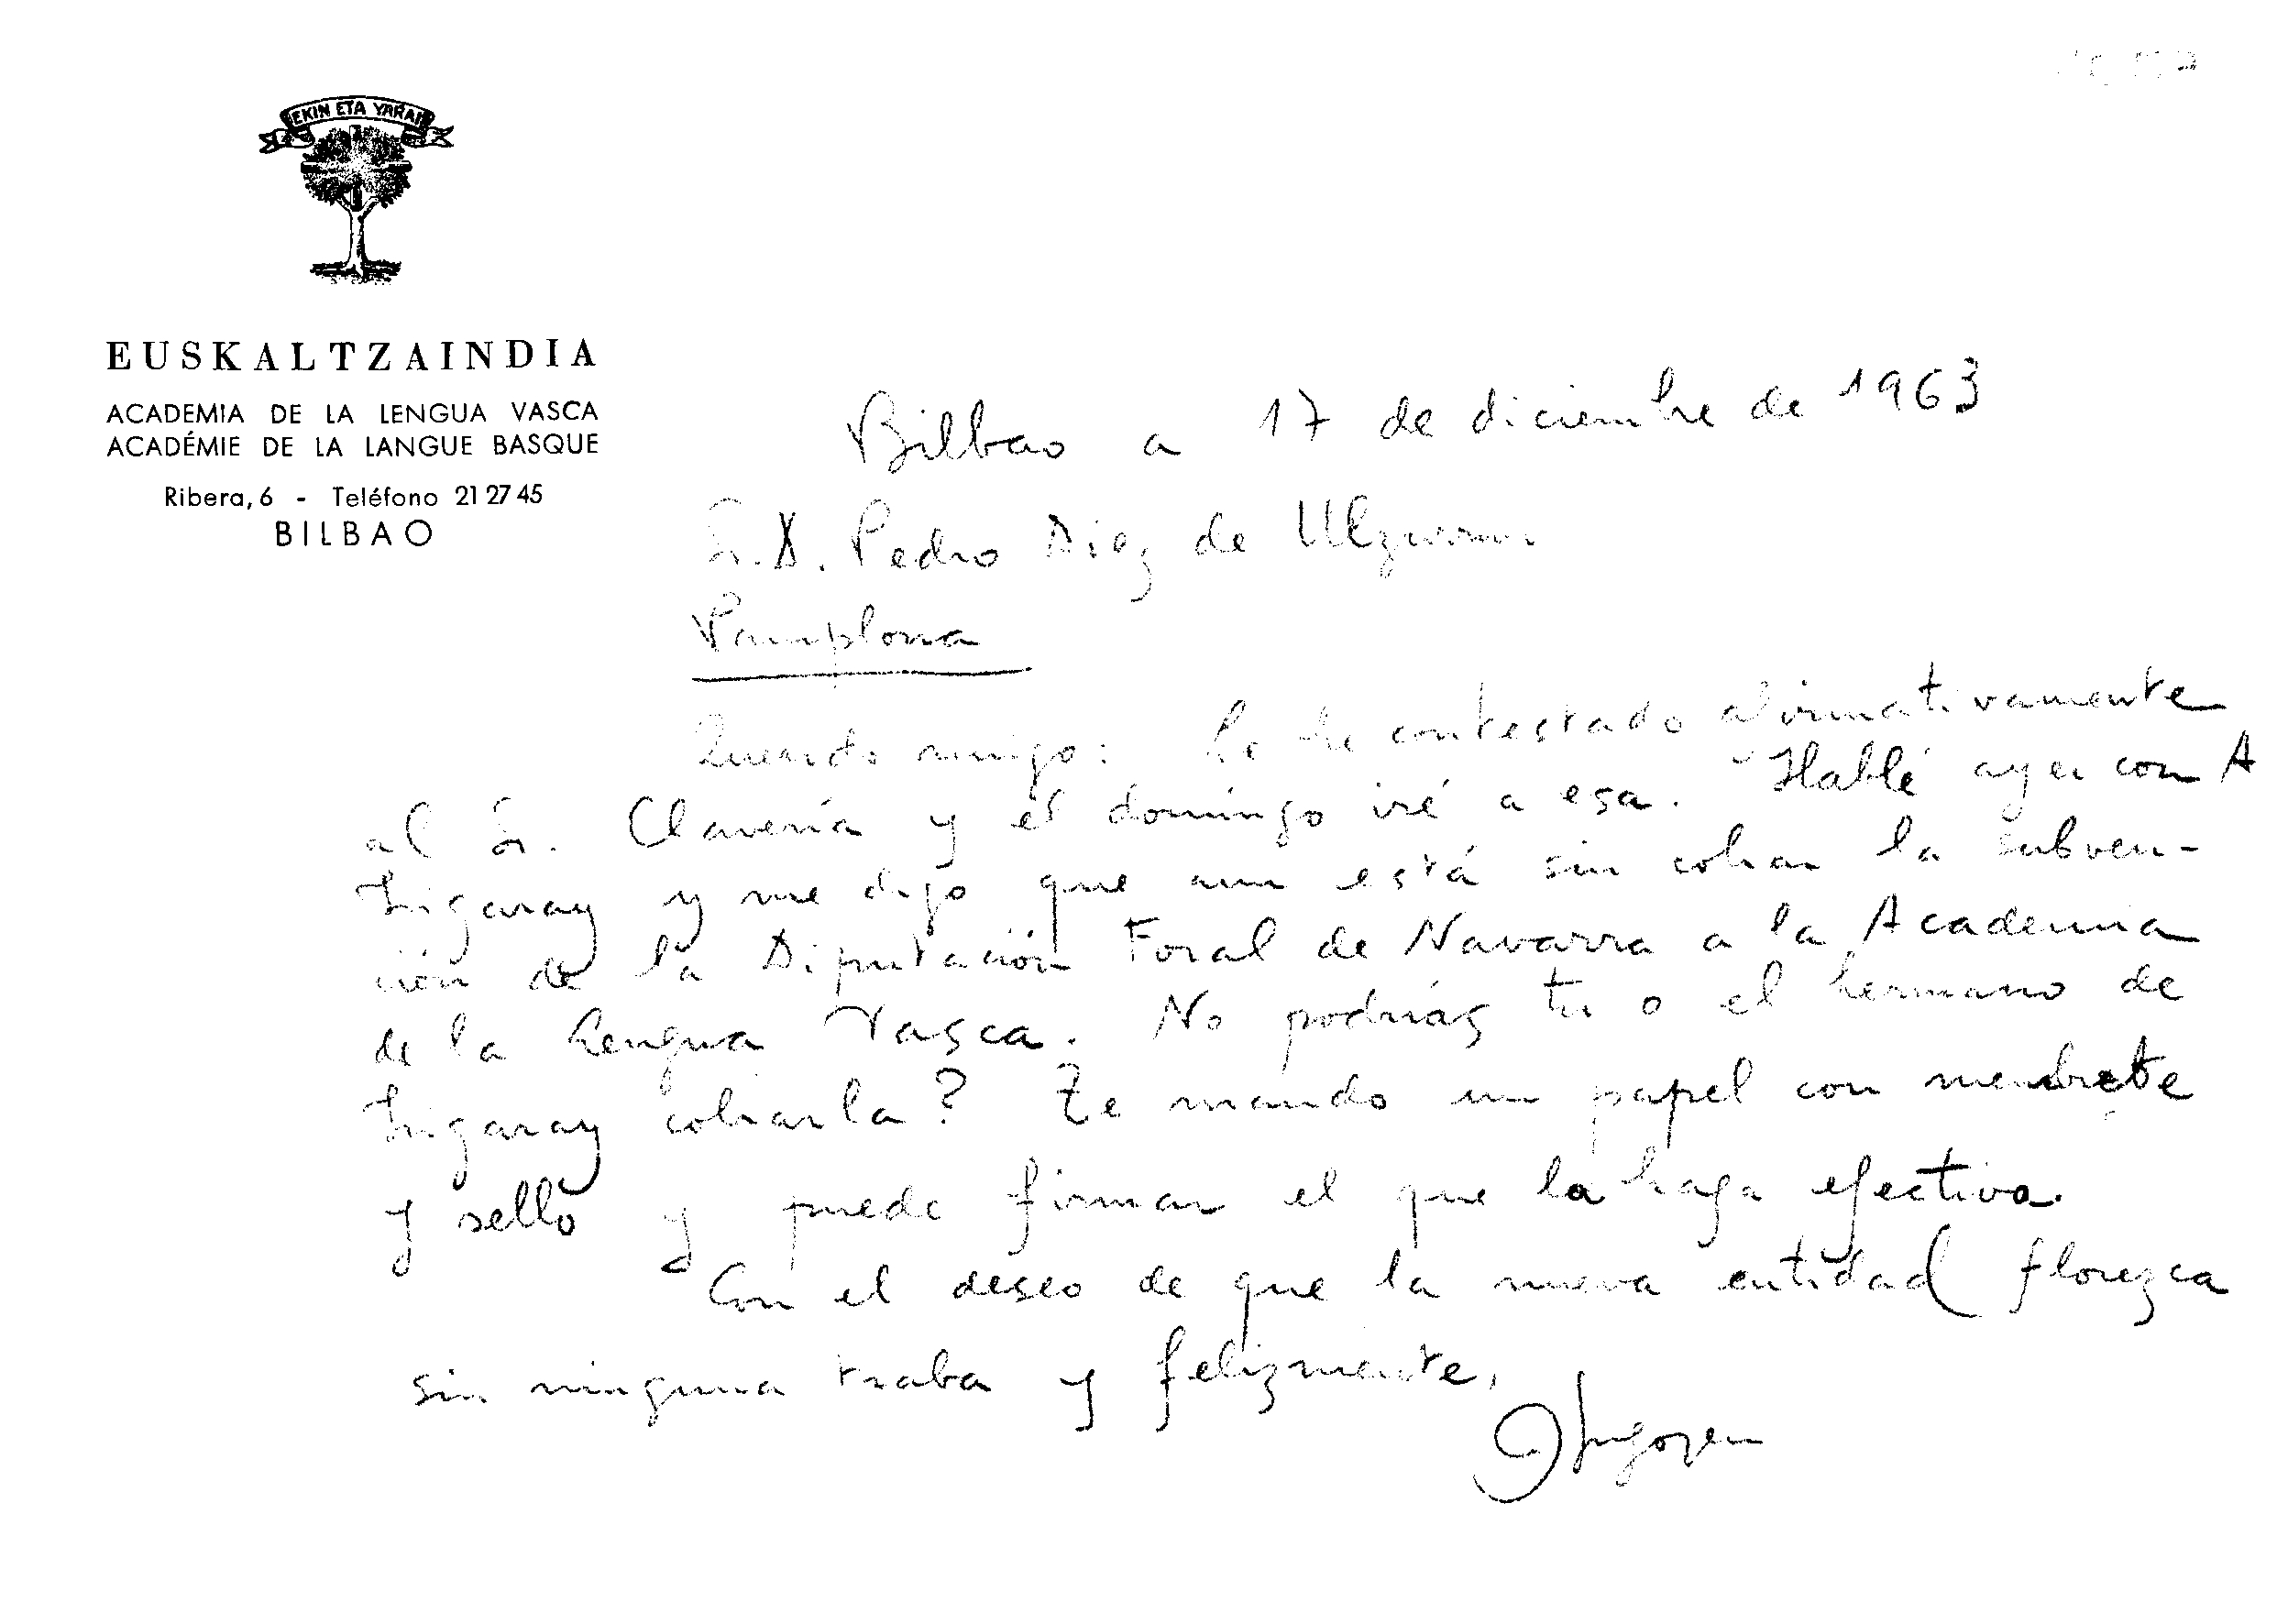 EKIN ETA YARRAI
EUSKALTZAINDIA
ACADEMIA DE LA LENGUA VASCA
ACADÉMIE DE LA LANGUE BASQUE
Ribera, 6 - Teléfono 21 27 45
BILBAO
Bilbao a 17 de diciembre de 1963
Sr. D. Pedro Diez de Ulzurrun
Pamplona
Querido amigo: Le he contestado afirmativamente
al Sr. Clavería y el domingo iré a esa. Hablé ayer con A
Irigaray y me dijo que aun está sin cobrar la subven-
ción de la Diputación Foral de Navarra a la Academia
de la Lengua Vasca. No podrías tu o el hermano de
Irigaray cobrarla? Te mando un papel con membrete
y sello y puede firmar el que la haga efectiva.
Con el deseo de que la nueva entidad florezca
sin ninguna traba y felizmente,
Irigoyen